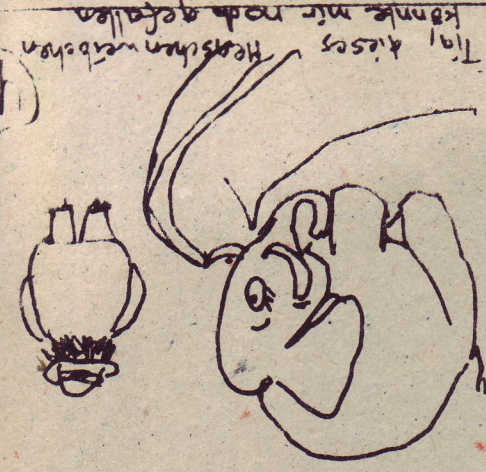 Tja, dieses Menschenweibchen
könnte mir noch gefallen